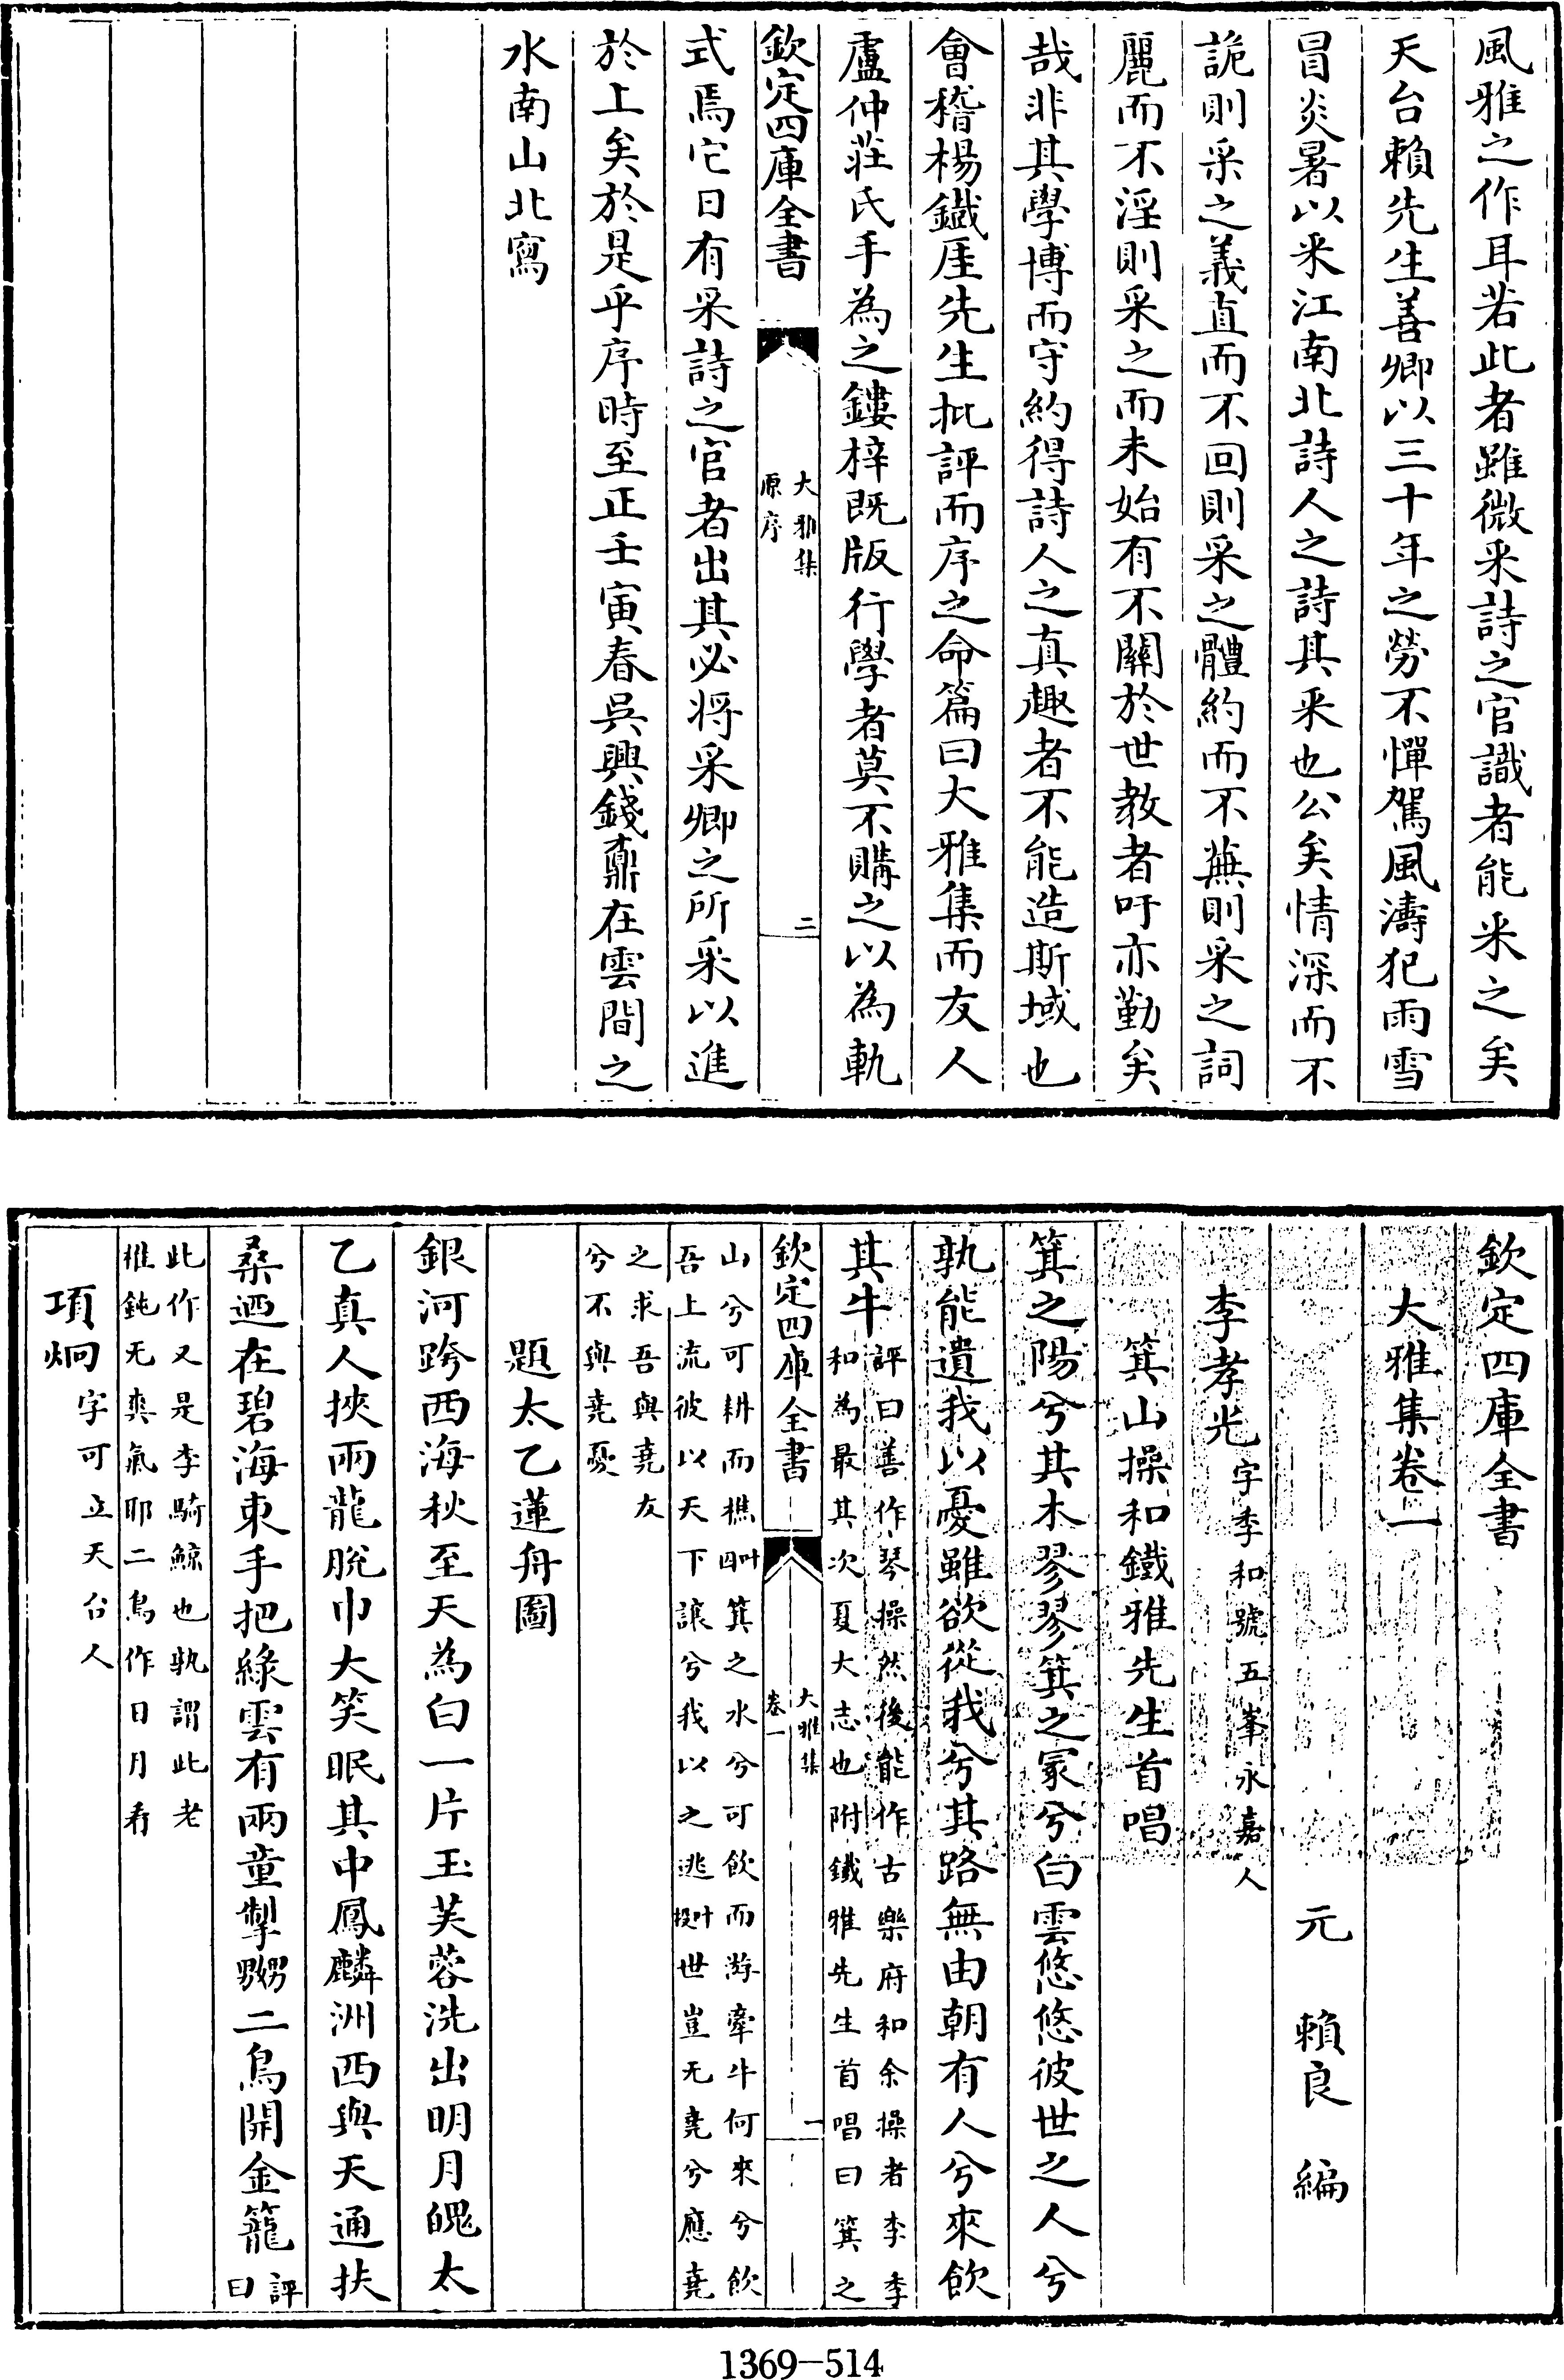 風雅之作耳若此者雖微采詩之官識者能采之矣
天台賴先生善卿以三十年之勞不憚駕風濤犯雨雪
冒炎暑以采江南北詩人之詩其采也公矣情深而不
詭則采之義直而不回則采之體約而不蕪則采之詞
麗而不淫則采之而未始有不關於世教者吁亦勤矣
哉非其學博而守約得詩人之真趣者不能造斯域也
會稽楊鐵厓先生批評而序之命篇曰大雅集而友人
盧仲莊氏手為之鏤梓既版行學者莫不購之以為軌
欽定四庫全書
大雅集
原序
二
式焉它日有采詩之官者出其必將采卿之所采以進
於上矣於是乎序時至正壬寅春吳興錢鼒在雲間之
水南山北寫
欽定四庫全書
大雅集卷一
元 賴良 編
李孝光字季和號五峯永嘉人
箕山操和鐵雅先生首唱
箕之陽兮其木翏翏箕之冡兮白雲悠悠彼世之人兮
孰能遺我以憂雖欲從我兮其路無由朝有人兮來飲
其牛評曰善作琴操然後能作古樂府和余操者李季
和為最其次夏大志也附鐵雅先生首唱曰箕之
欽定四庫全書
大雅集
卷一
一
山兮可耕而樵叶囚箕之水兮可飲而游牽牛何來兮飲
吾上流彼以天下讓兮我以之逃叶投世豈无堯兮應堯
之求吾與堯友
兮不與堯憂
題太乙蓮舟圖
銀河跨西海秋至天為白一片玉芙蓉洗出明月魄太
乙真人挾兩龍脫巾大笑眠其中鳳麟洲西與天通扶
桑迺在碧海東手把綠雲有兩童掣嬲二鳥開金籠評
曰
此作又是李騎鯨也孰謂此老
椎鈍无爽氣耶二鳥作日月看
項炯字可立天台人
1369-514